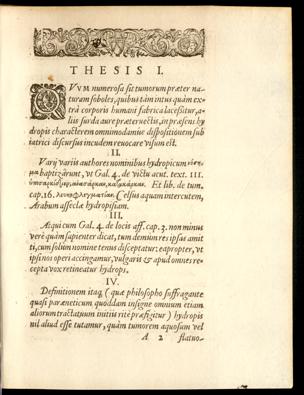 THESIS I.
QVVM numerosa sit tumorum præter na-
turam soboles, quibus tàm intus quàm ex-
trà corporis humani fabrica lacesitur, a-
liis surda aure præteruectis, in præsens hy-
dropis characterem omnimodamúe dispositionem sub
iatrici discursus incudem reuocare visum est.
II.
Varij variis authores nominibus hydropicum
baptizârunt, vt Gal. 4. de victu acut. text. 111.
Et lib. de tum.
cap. 16. λευκοφλεγματίαν. Celsus aquam intercutem,
Arabum asseclæ hydropisiam.
III.
At qui cum Gal. 4. de locis aff. cap. 3. non minus
verè quàm sapienter dicat, tum demium res ipsas amit
ti, cum solùm nomine tenus disceptatur: eapropter, vt
ipsi nos operi accingamur, vulgaris & apud omnes re-
cepta vox retineatur hydrops.
IV.
Definitionem itaq; (quæ philosopho suffragante
quasi paræneticum quoddam insigne omnium etiam
aliorum tractatuum initiis ritè præfigitur) hydropis
nil aliud esse tutamur, quàm tumorem aquosum vel
A 2 flatuo-